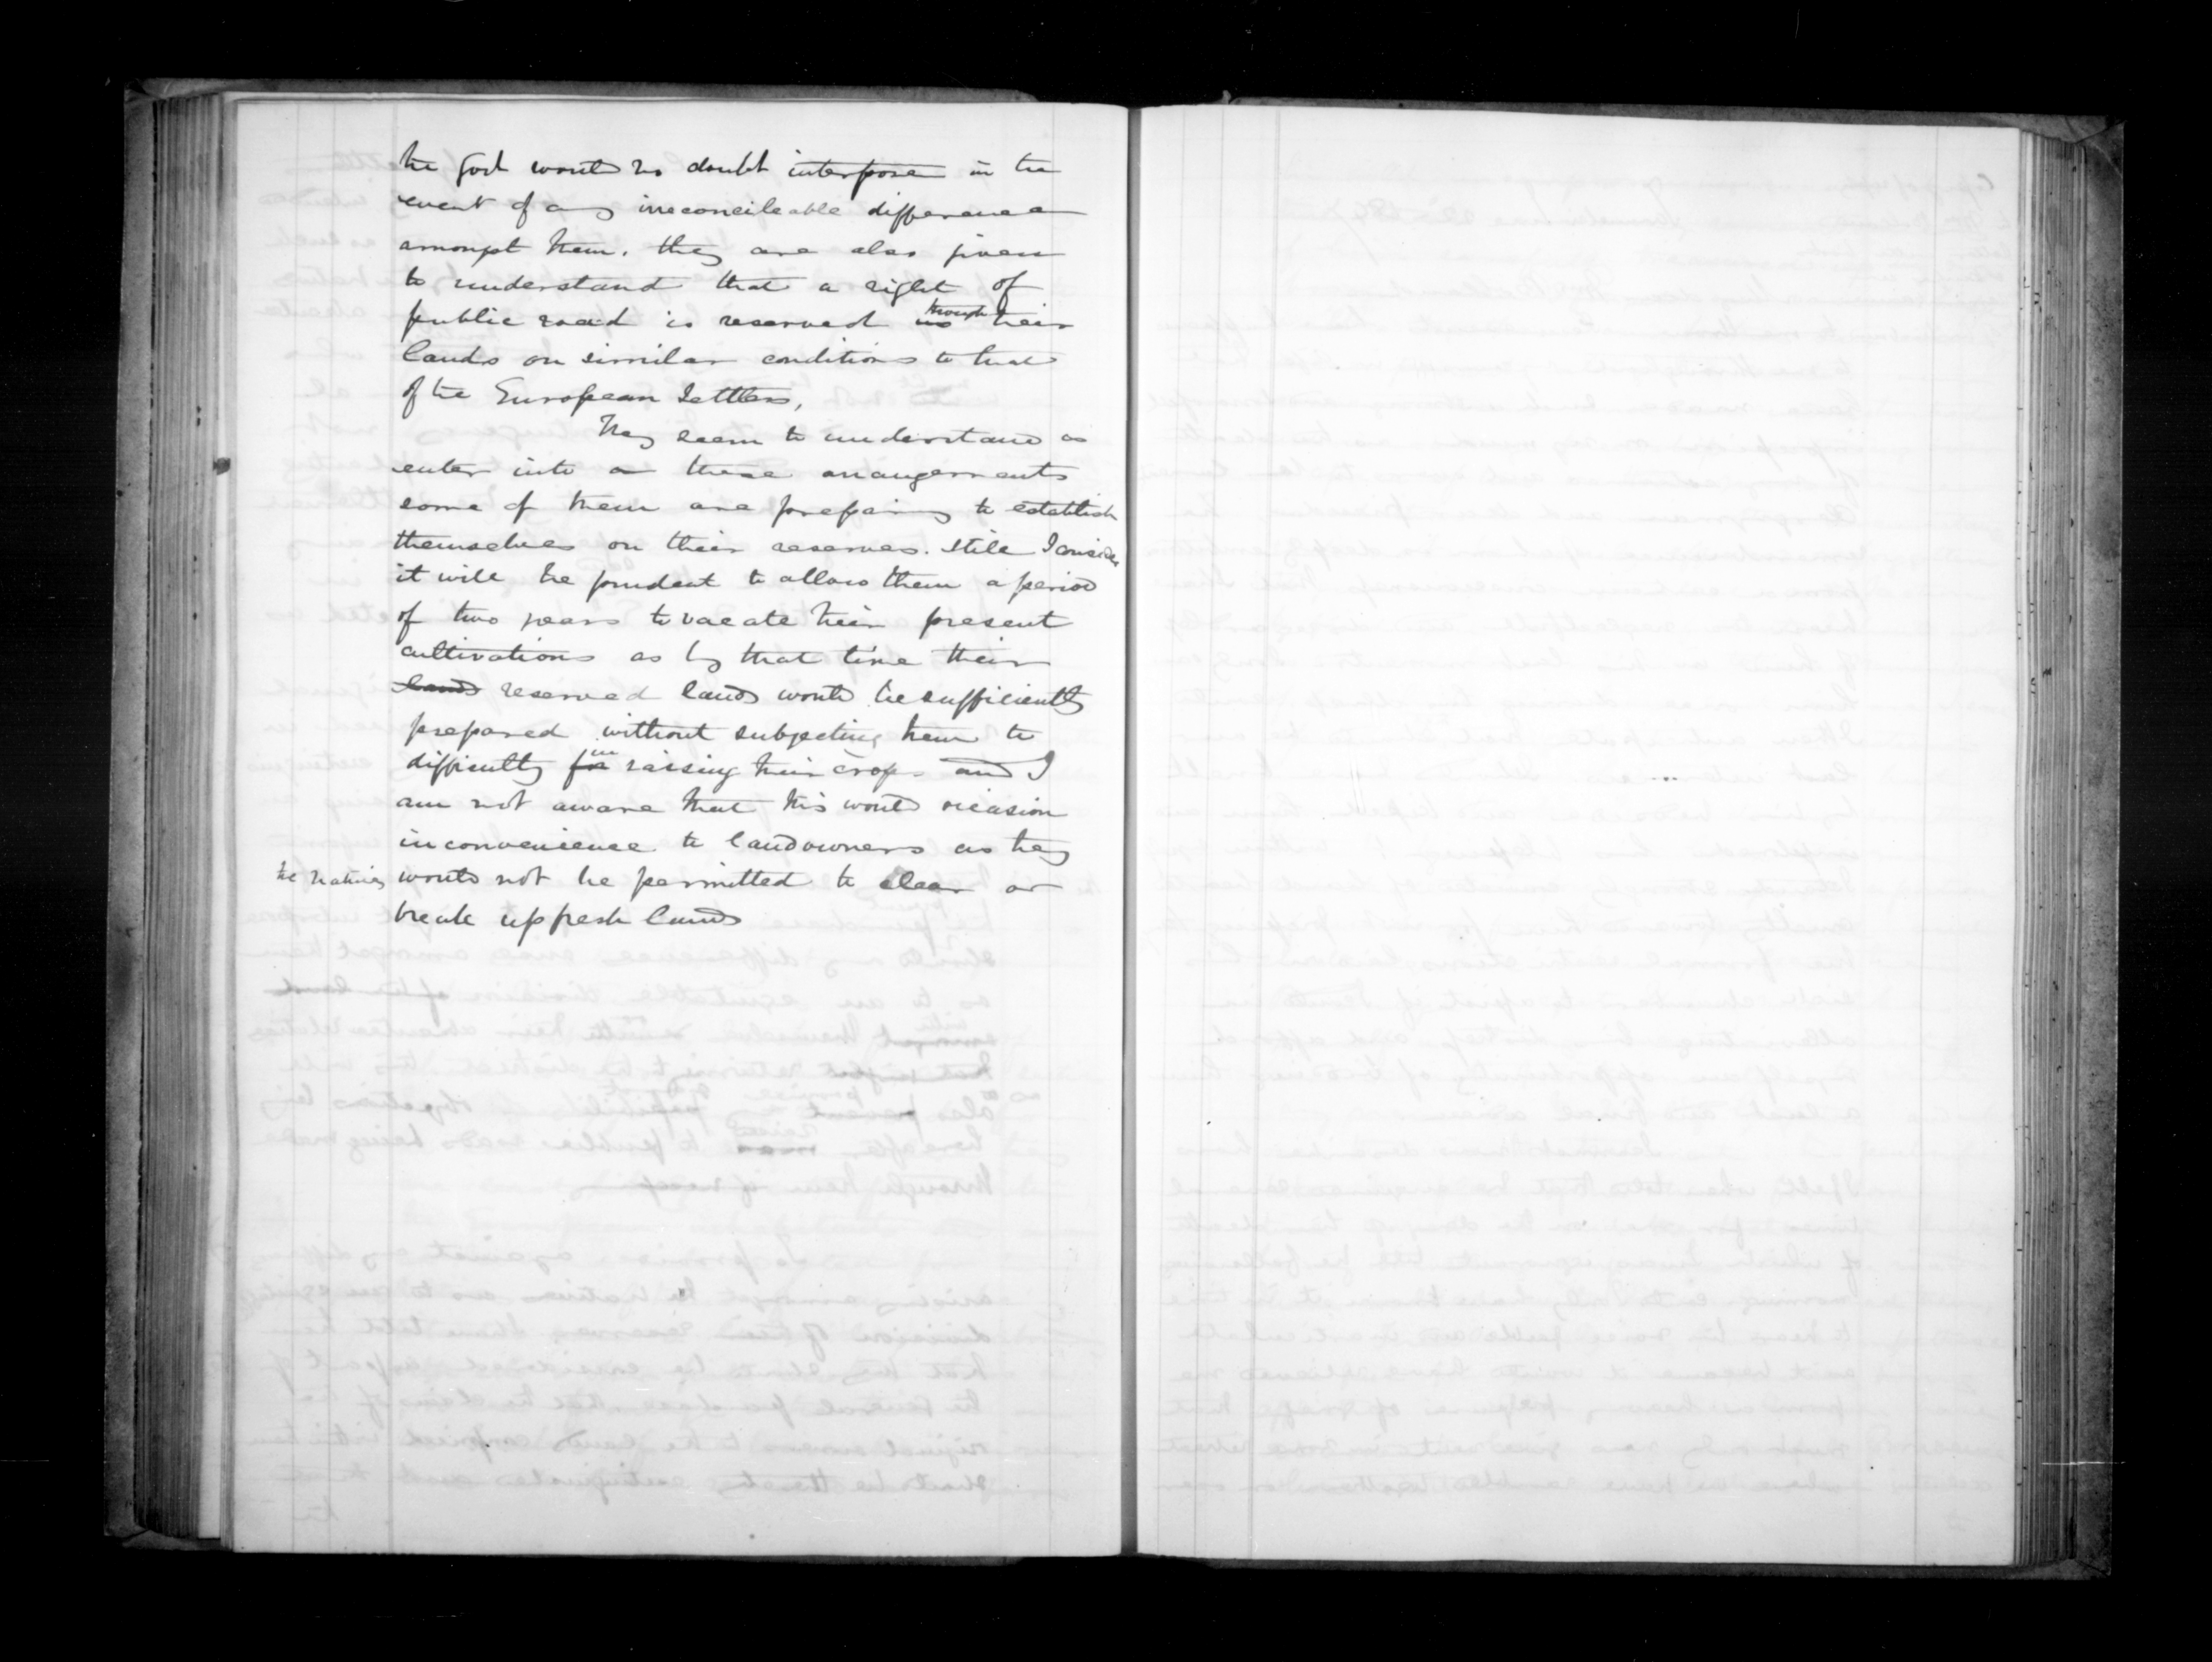 the Govt would no doubt interpose in the
event of any irreconcileable difference
amongst them. they are also given
to understand that a right of
public road is reserved through their
lands on similar conditions to that
of the European Settlers,
They seem to understand as
enter into these arrangements
some of them are preparing to establish
themselves on their reserves. Still I consider
it will be prudent to allow them a period
of two years to vacate their present
cultivations as by that time their
land reserved lands would be sufficiently
prepared without subjecting them to
difficulty for in raising their crops and I
am not aware that this would occasion
inconvenience to landowners as they
the Natives would not be permitted to clear or
break up fresh lands